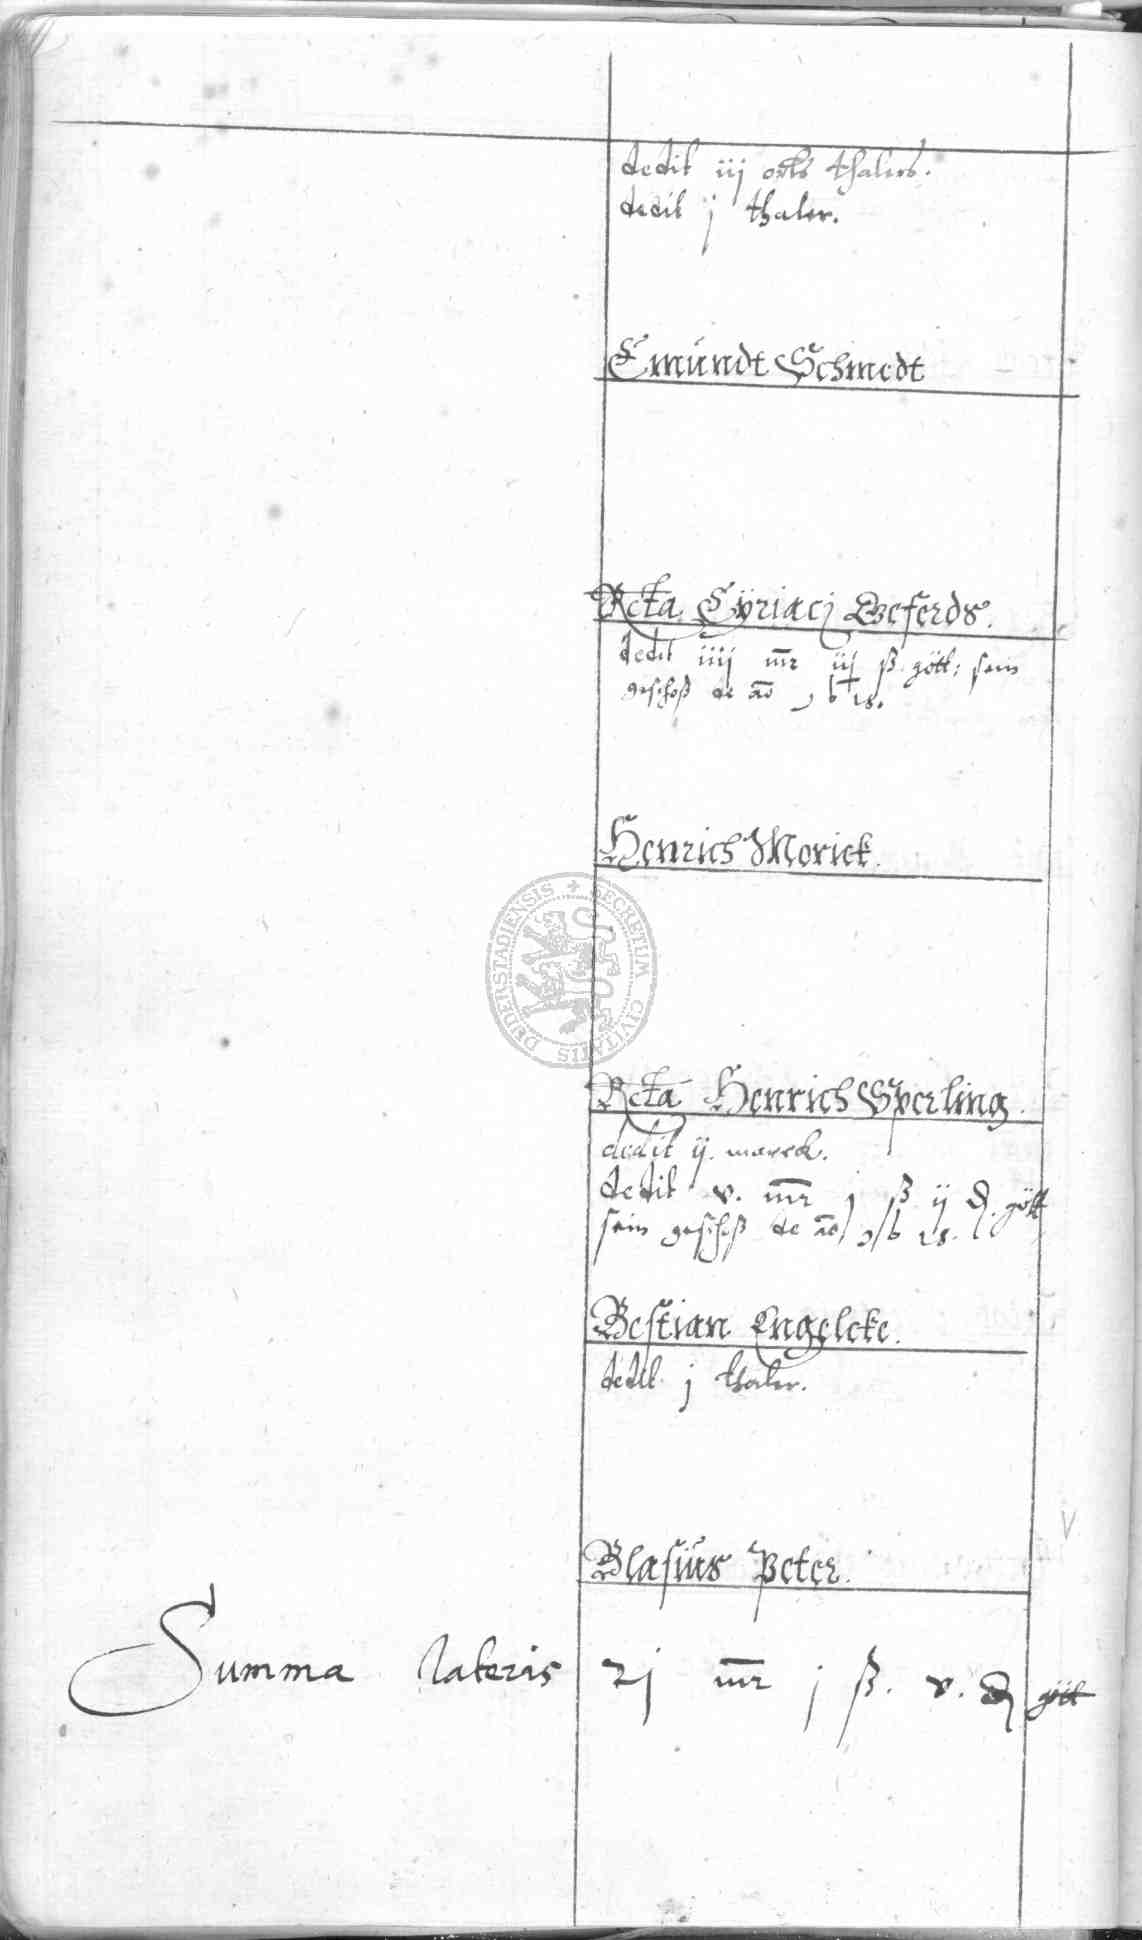 dedit iij orts thalers.
dedit j thaler.
Emundt Schmedt
Rcta Cÿriacj Weferds.
dedit iiij mr iij ß gött: sein
geschoß de ao
Henrich Morick.
SECRETUM CIVITATIS DEDERSTADIENSIS
Rcta Henrich Sperling.
dedit ij. marck.
dedit v. mr j ß ij d. gött
sein geschoß de ao
Bestian Engelcke.
dedit j thaler.
Blasius Peter.
Summa lateris xj mr j ß. v. d gött